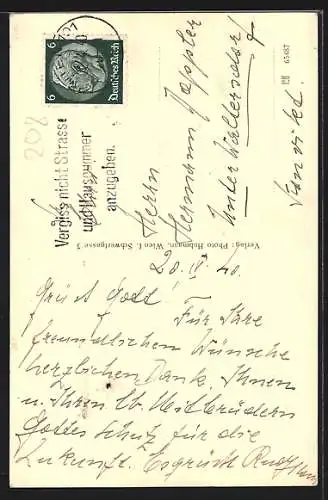 6 6
Deutsches Reich
Vergiss nicht Strasse
und Hausnummer
anzugeben.
208
Herrn
Hermann Doppler
Unterwaltersdorf
65487
Verlag: Photo Hubmann, Wien I. Schwertgasse 3
20. V. 40.
Grüss Gott!
Für Ihre
freundlichen Wünsche
herzlichen Dank. Ihnen
u. Ihren lb. Mitbrüdern
Gottes Schutz für die
Zukunft. Es grüßt